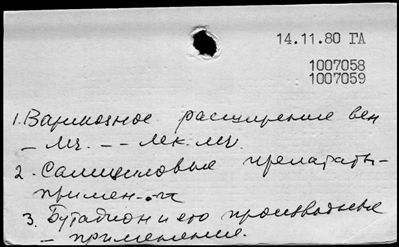 14.11.80 ГА
1007058
1007059
1. Варикозное расширение вен
– леч. – – лек. леч.
2. Салициловые препараты –
примен-е
3. Бутадион и его производные
– применение.